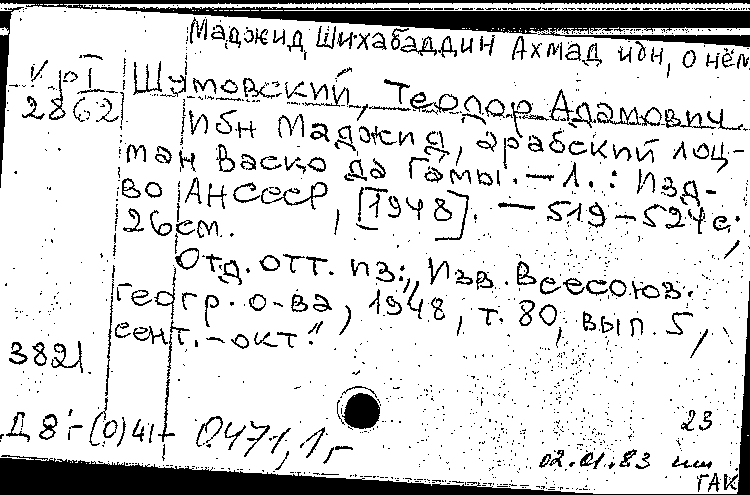 Маджид, Шихабаддин Ахмад ибн, о нём
V pI
2862
Шумовский, Теодор Адамович.
Ибн Маджид, арабский лоц-
ман Васко да Гамы. — Л. : Изд-
во АН СССР, [1948]. — 519-524 с;
26 см.
Отд. отт. из: „Изв. Всесоюз.
геогр. о-ва, 1948, т. 80, вып. 5,
сент.-окт."
3821
Д 8:-(0)41- 0471,1,-
23
02.01.83
ГАК